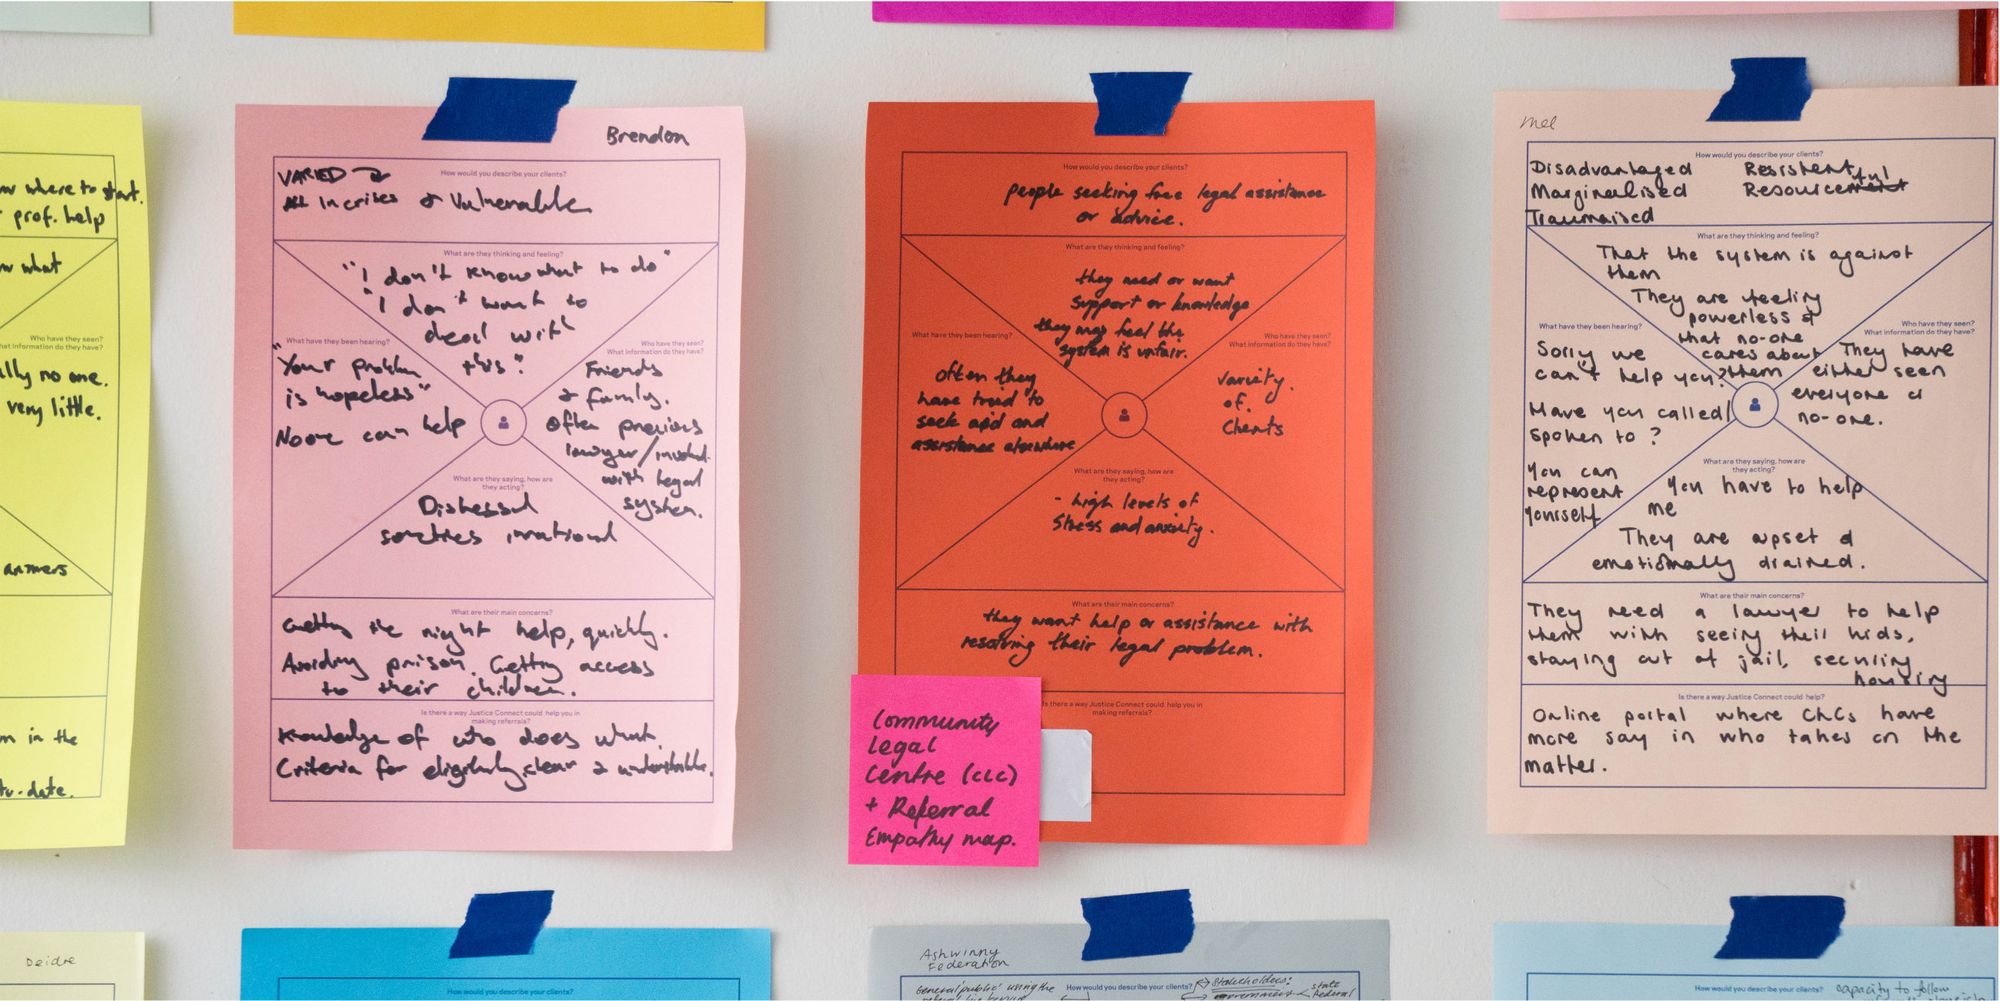 where to start.
prof. help
what
Who have they seen?
What information do they have?
no one.
very little.
answers
in the
Brendon
How would you describe your clients?
VARIED
In crises & Vulnerable
What are they thinking and feeling?
"I don't know what to do"
"I don't want to
deal with
this."
What have they been hearing?
"Your problem
is hopeless"
No one can help
Who have they seen?
What information do they have?
Friends
& family.
Often previous
lawyer/
with legal
system.
What are they saying, how are
they acting?
Distressed
sometimes irrational
What are their main concerns?
Getting the right help, quickly.
Avoiding prison. Getting access
to their children.
Is there a way Justice Connect could help you in
making referrals?
Knowledge of who does what.
Criteria for eligibility clear & understandable.
How would you describe your clients?
people seeking free legal assistance
or advice.
What are they thinking and feeling?
they need or want
support or knowledge
they may feel the
system is unfair.
What have they been hearing?
often they
have tried to
seek aid and
assistance elsewhere
Who have they seen?
What information do they have?
variety
of
clients
What are they saying, how are
they acting?
- high levels of
stress and anxiety.
What are their main concerns?
they want help or assistance with
resolving their legal problem.
Is there a way Justice Connect could help you in
making referrals?
Community
Legal
Centre (CLC)
+ Referral
Empathy map.
Mel
How would you describe your clients?
Disadvantaged Resistent
Marginalised Resourceful
Traumaised
What are they thinking and feeling?
That the system is against
them
They are feeling
powerless &
that no-one
cares about
them
What have they been hearing?
Sorry we
can't help you?
Have you called/
spoken to?
You can
represent
yourself
Who have they seen?
What information do they have?
They have
either seen
everyone or
no-one.
What are they saying, how are
they acting?
You have to help
me
They are upset &
emotionally drained.
What are their main concerns?
They need a lawyer to help
them with seeing their kids,
staying out of jail, securing
housing
Is there a way Justice Connect could help?
Online portal where CLCs have
more say in who takes on the
matter.
Deidre
How would you describe your clients?
Ashwinny
Federation
How would you describe your clients?
General public using the
Stakeholders:
government
state
Federal
How would you describe your clients?
capacity to follow